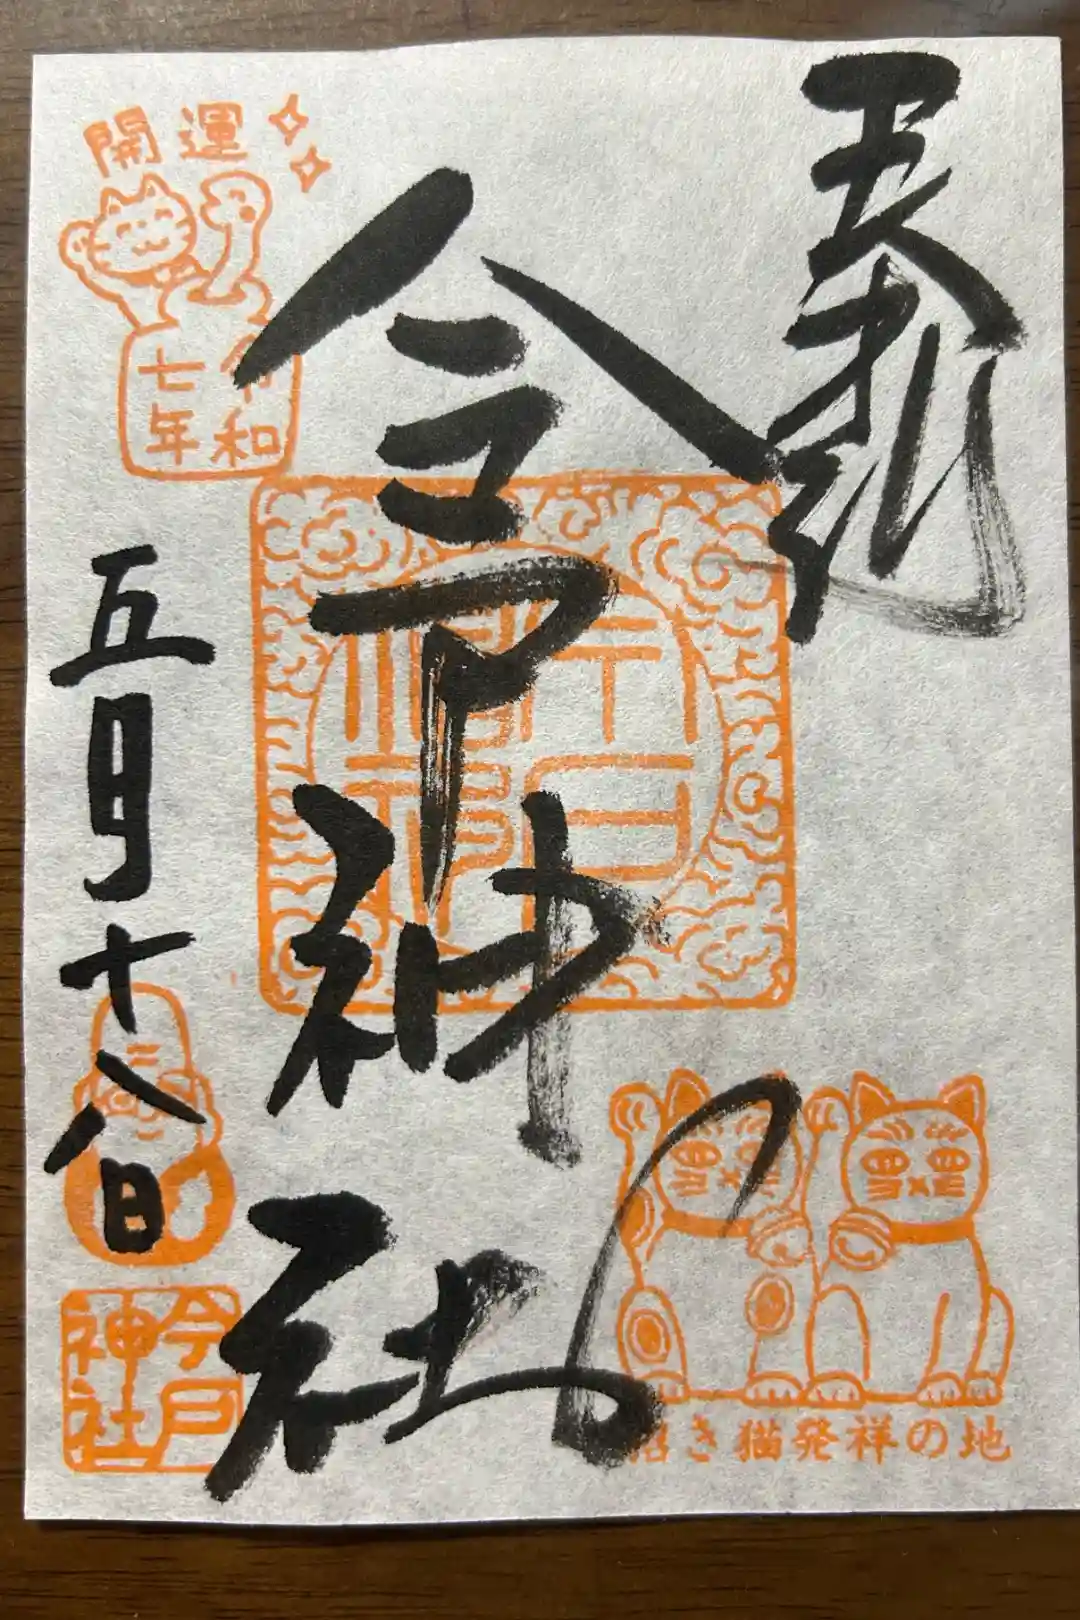 奉拝
今戸神社
五月十八日
開運
令和
七年
今戸
神社
招き猫発祥の地